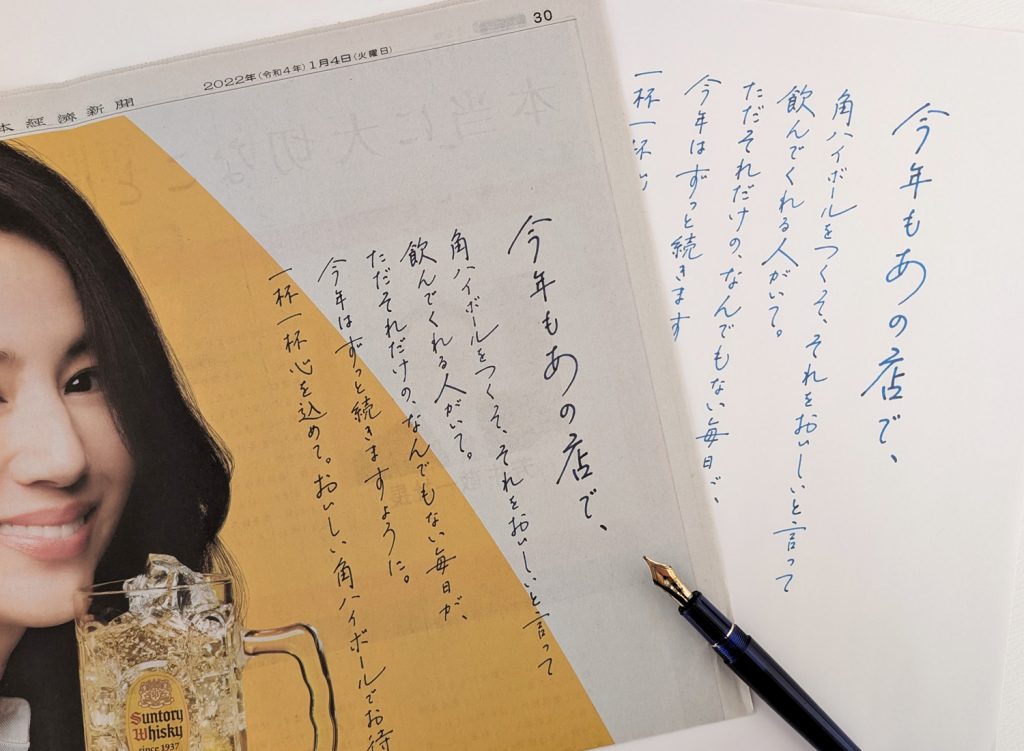 30
2022年(令和4年)1月4日(火曜日)
本経済新聞
今年もあの店で、
角ハイボールをつくって、それをおいしいと言って
飲んでくれる人がいて。
ただそれだけの、なんでもない毎日が、
今年はずっと続きますように。
一杯一杯心を込めて。おいしい角ハイボールでお待
Suntory
Whisky
since 1937
今年もあの店で、
角ハイボールをつくって、それをおいしいと言って
飲んでくれる人がいて。
ただそれだけの、なんでもない毎日が、
今年はずっと続きます
一杯一杯